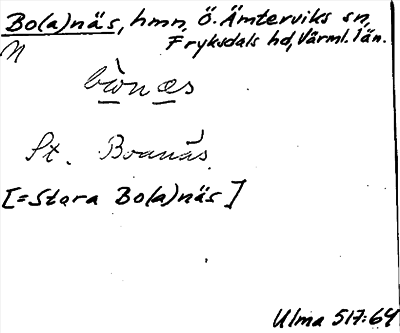 Bo(a)näs, hmn, Ö. Ämterviks sn,
Fryksdals hd, Värml. län.
N
St. Boanäs
[=Stora Bo(a)näs]
Ulma 517:64